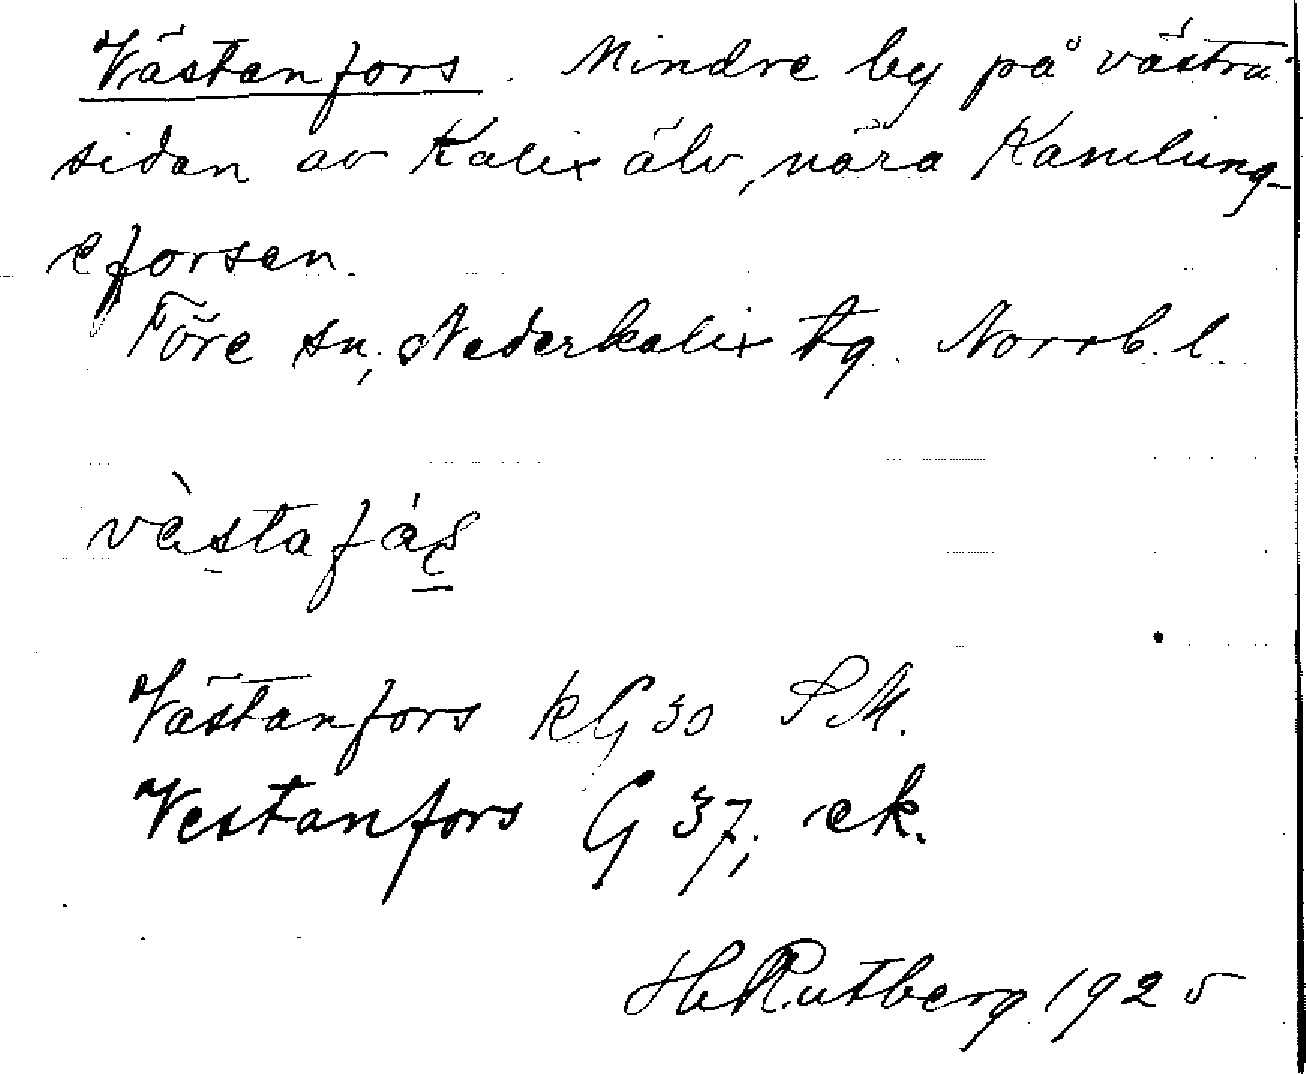 Västanfors. Mindre by på västra
sidan av Kalix älv, nära Kamlung-
eforsen.
Töre sn, Nederkalix tg. Norrb. l.
Västanfors KG 30 SM.
Vestanfors G 37, ek.
H Rutberg 1925